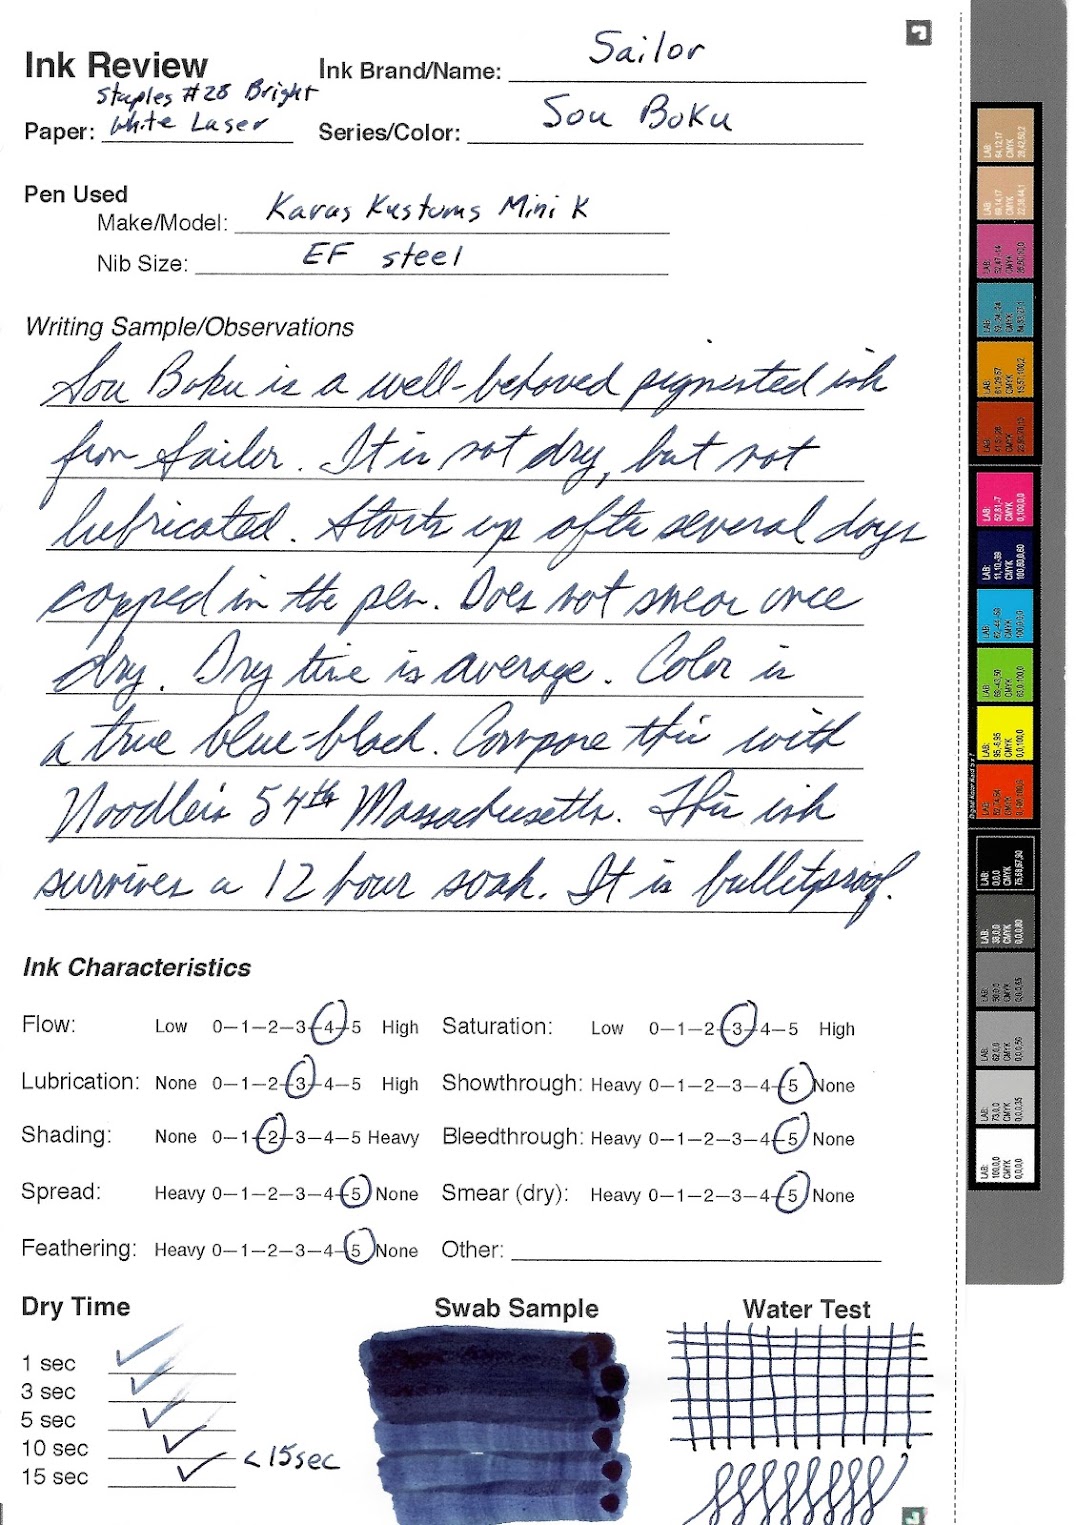 Ink Review
Ink Brand/Name: Sailor
Staples #28 Bright
Paper: White Laser
Series/Color: Sou Boku
Pen Used
Make/Model: Karas Kustoms Mini K
Nib Size: EF steel
Writing Sample/Observations
Sou Boku is a well-beloved pigmented ink
from Sailor. It is not dry, but not
lubricated. Starts up after several days
capped in the pen. Does not smear once
dry. Dry time is average. Color is
a true blue-black. Compare this with
Noodler's 54th Massachusetts. This ink
survives a 12 hour soak. It is bulletproof.
Ink Characteristics
Flow: Low 0-1-2-3-4-5 High Saturation: Low 0-1-2-3-4-5 High
Lubrication: None 0-1-2-3-4-5 High Showthrough: Heavy 0-1-2-3-4-5 None
Shading: None 0-1-2-3-4-5 Heavy Bleedthrough: Heavy 0-1-2-3-4-5 None
Spread: Heavy 0-1-2-3-4-5 None Smear (dry): Heavy 0-1-2-3-4-5 None
Feathering: Heavy 0-1-2-3-4-5 None Other:
Dry Time Swab Sample Water Test
1 sec
3 sec
5 sec
10 sec
15 sec <15sec